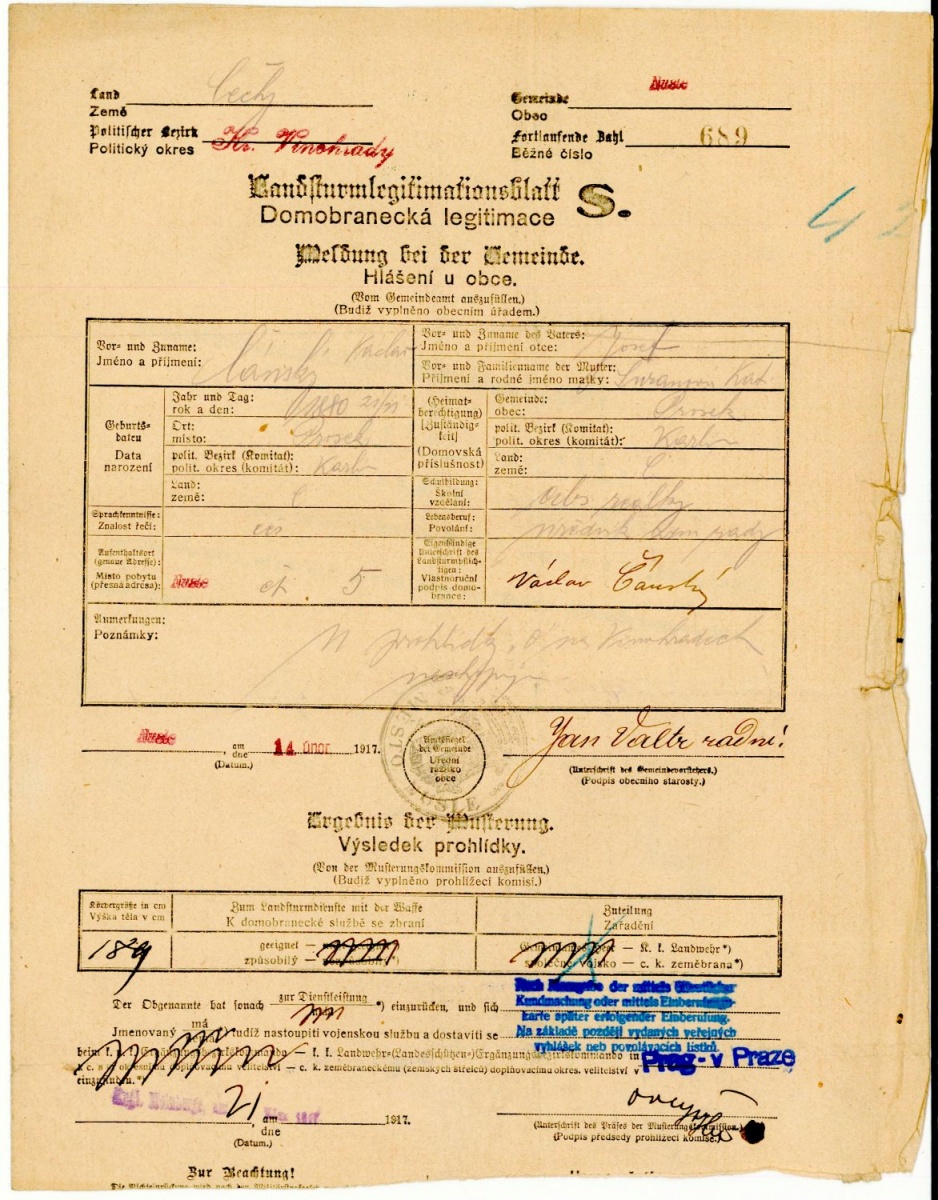 Land
Země
Čechy
Politischer Bezirk
Politický okres
Kr. Vinohrady
Gemeinde
Obec
Nusle
Fortlaufende Zahl
Běžné číslo
689
Landsturmlegitimationsblatt
Domobranecká legitimace
S.
Meldung bei der Gemeinde.
Hlášení u obce.
(Vom Gemeindeamt auszufüllen.)
(Budiž vyplněno obecním úřadem.)
Vor- und Zuname:
Jméno a příjmení:
Čánský Václav
Vor- und Zuname des Vaters:
Jméno a příjmení otce:
Josef
Vor- und Familienname der Mutter:
Příjmení a rodné jméno matky:
Kat
Geburts-
daten
Data
narození
Jahr und Tag:
rok a den:
1880
Ort:
místo:
Prosek
polit. Bezirk (Komitat):
polit. okres (komitát):
Karlín
Land:
země:
Č
(Heimat-
berechtigung)
[Zuständig-
keit]
(Domovská
příslušnost)
Gemeinde:
obec:
Prosek
polit. Bezirk (Komitat):
polit. okres (komitát):
Karlín
Land:
země:
Č
Sprachkenntnisse:
Znalost řečí:
čes
Schulbildung:
Školní
vzdělání:
Lebensberuf:
Povolání:
úředník
Aufenthaltsort
(genaue Adresse):
Místo pobytu
(přesná adresa):
Nusle čp 5
Eigenhändige
Unterschrift des
Landsturmpflich-
tigen:
Vlastnoruční
podpis domo-
brance:
Václav Čánský
Anmerkungen:
Poznámky:
U prohlídky na Vinohradech
Nusle, am
dne 14. únor. 1917.
(Datum.)
Amtssiegel
der Gemeinde
Úřední
razítko
obce
Jan Valtr radní
(Unterschrift des Gemeindevorstehers.)
(Podpis obecního starosty.)
Ergebnis der Musterung.
Výsledek prohlídky.
(Von der Musterungskommission auszufüllen.)
(Budiž vyplněno prohlížecí komisí.)
Körpergröße in cm
Výška těla v cm
Zum Landsturmdienste mit der Waffe
K domobranecké službě se zbraní
Zuteilung
Zařadění
geeignet —
způsobilý —
— K. k. Landwehr*)
společné vojsko — c. k. zeměbrana*)
Der Obgenannte hat sonach zur Dienstleistung *) einzurücken, und sich
Nach Massgabe der mittels öffentlicher
Kundmachung oder mittels Einberufungs-
karte später erfolgender Einberufung.
Na základě později vydaných veřejných
vyhlášek neb povolávacích lístků.
Jmenovaný má budiž nastoupiti vojenskou službu a dostaviti se
beim k. u. k. Ergänzungsbezirkskommando — k. k. Landwehr-(Landesschützen-)Ergänzungsbezirkskommando in
k c. a k. okresnímu doplňovacímu velitelství — c. k. zeměbraneckému (zemských střelců) doplňovacímu okres. velitelství v
Prag - v Praze
einzufinden.*)
21
, am
dne 1917.
(Datum.)
(Unterschrift des Präses der Musterungskommission.)
(Podpis předsedy prohlížecí komise.)
Zur Beachtung!